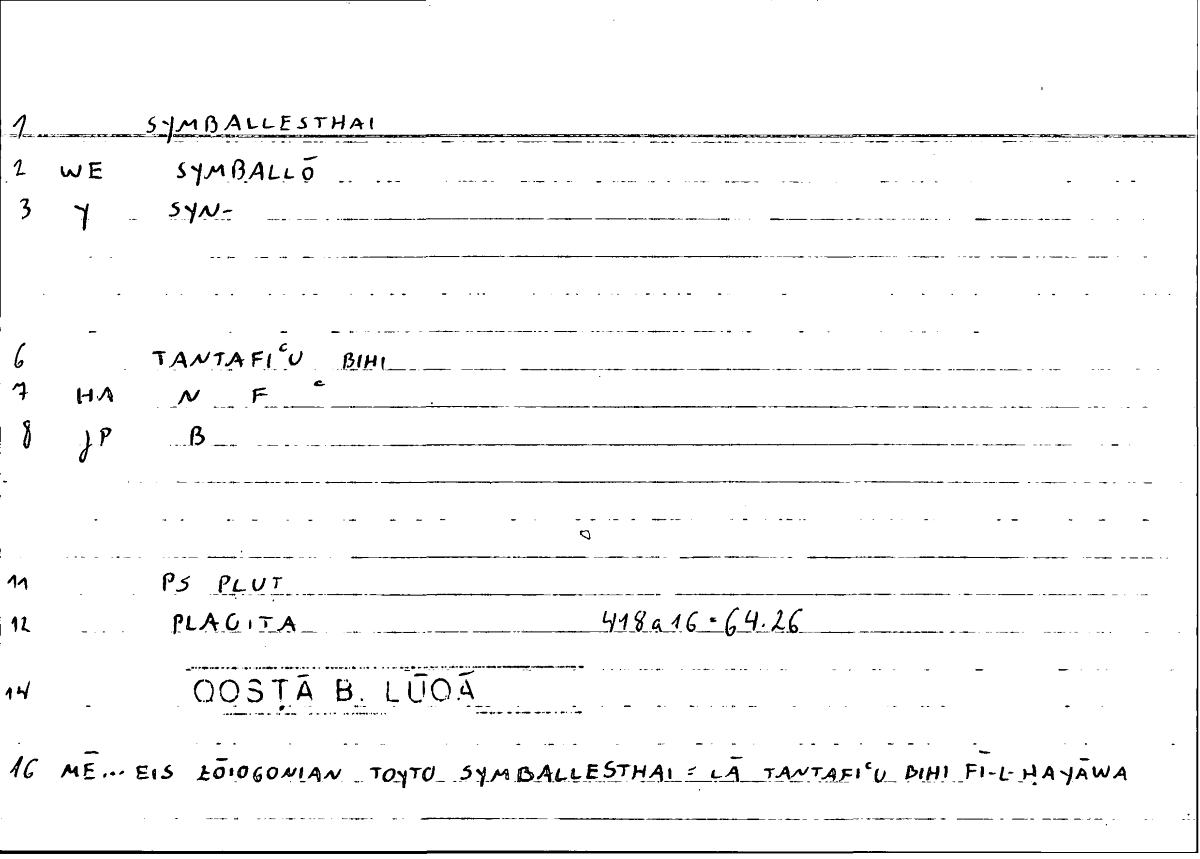 1 SYMBALLESTHAI
2 WE SYMBALLŌ
3 Y SYN-
6 TANTAFIᶜU BIHI
7 HA N F ᶜ
8 JP B
11 PS PLUT
12 PLACITA 418a16 = 64.26
14 QOSṬĀ B. LŪQĀ
16 MĒ... EIS ZŌIOGONIAN TOYTO SYMBALLESTHAI = LĀ TANTAFIᶜU BIHI FĪ-L-ḤAYĀWA